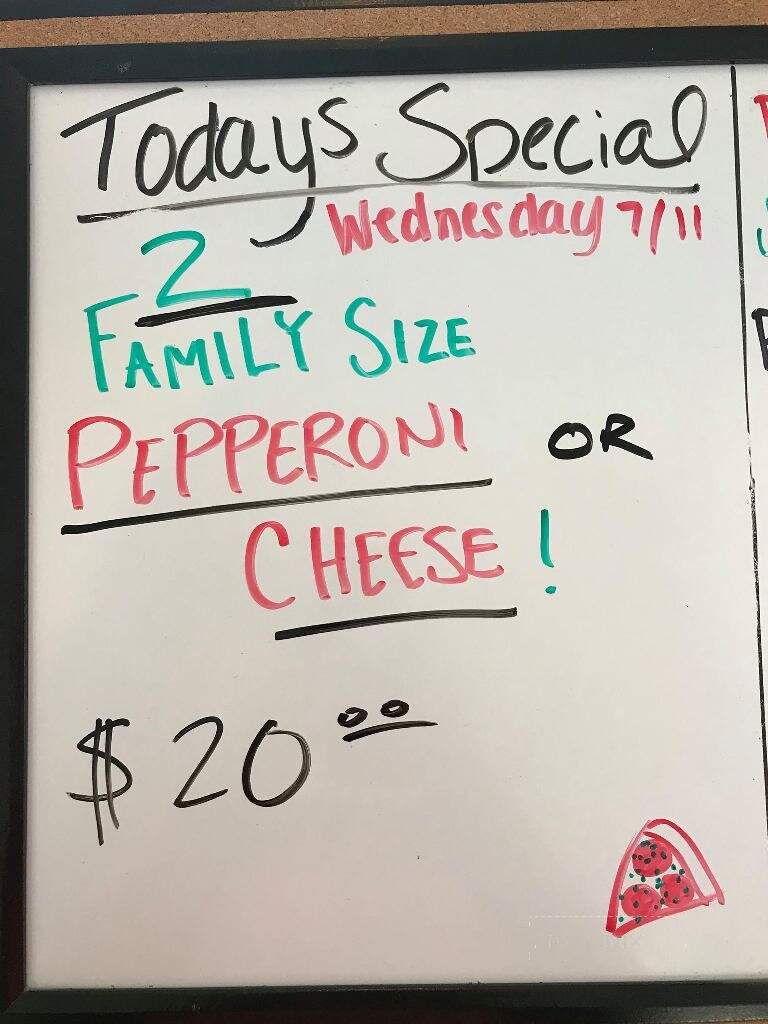 Todays Special
Wednesday 7/11
2
FAMILY SIZE
PEPPERONI OR
CHEESE!
$20⁰⁰